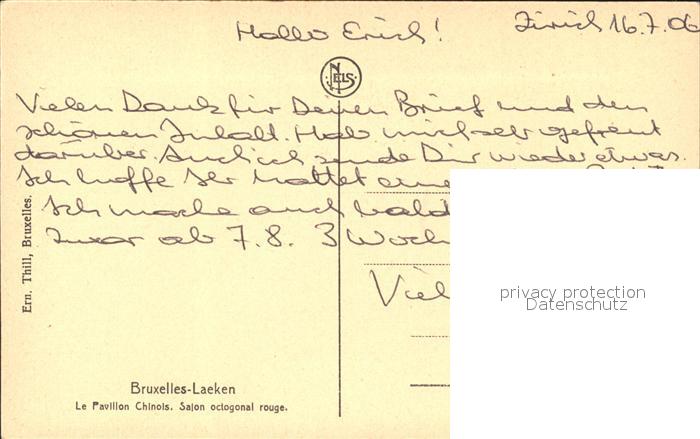 Hallo Erich!
Zürich 16.7.06
NELS
Vielen Dank für Deinen Brief und den
schönen Inhalt. Hab mich sehr gefreut
darüber. Auch ich sende Dir wieder etwas.
Ich hoffe Ihr hattet eine
Ich mache auch bald
zwar ab 7.8. 3 Woch
Viel
privacy protection
Datenschutz
Ern. Thill, Bruxelles.
Bruxelles-Laeken
Le Pavillon Chinois. Salon octogonal rouge.